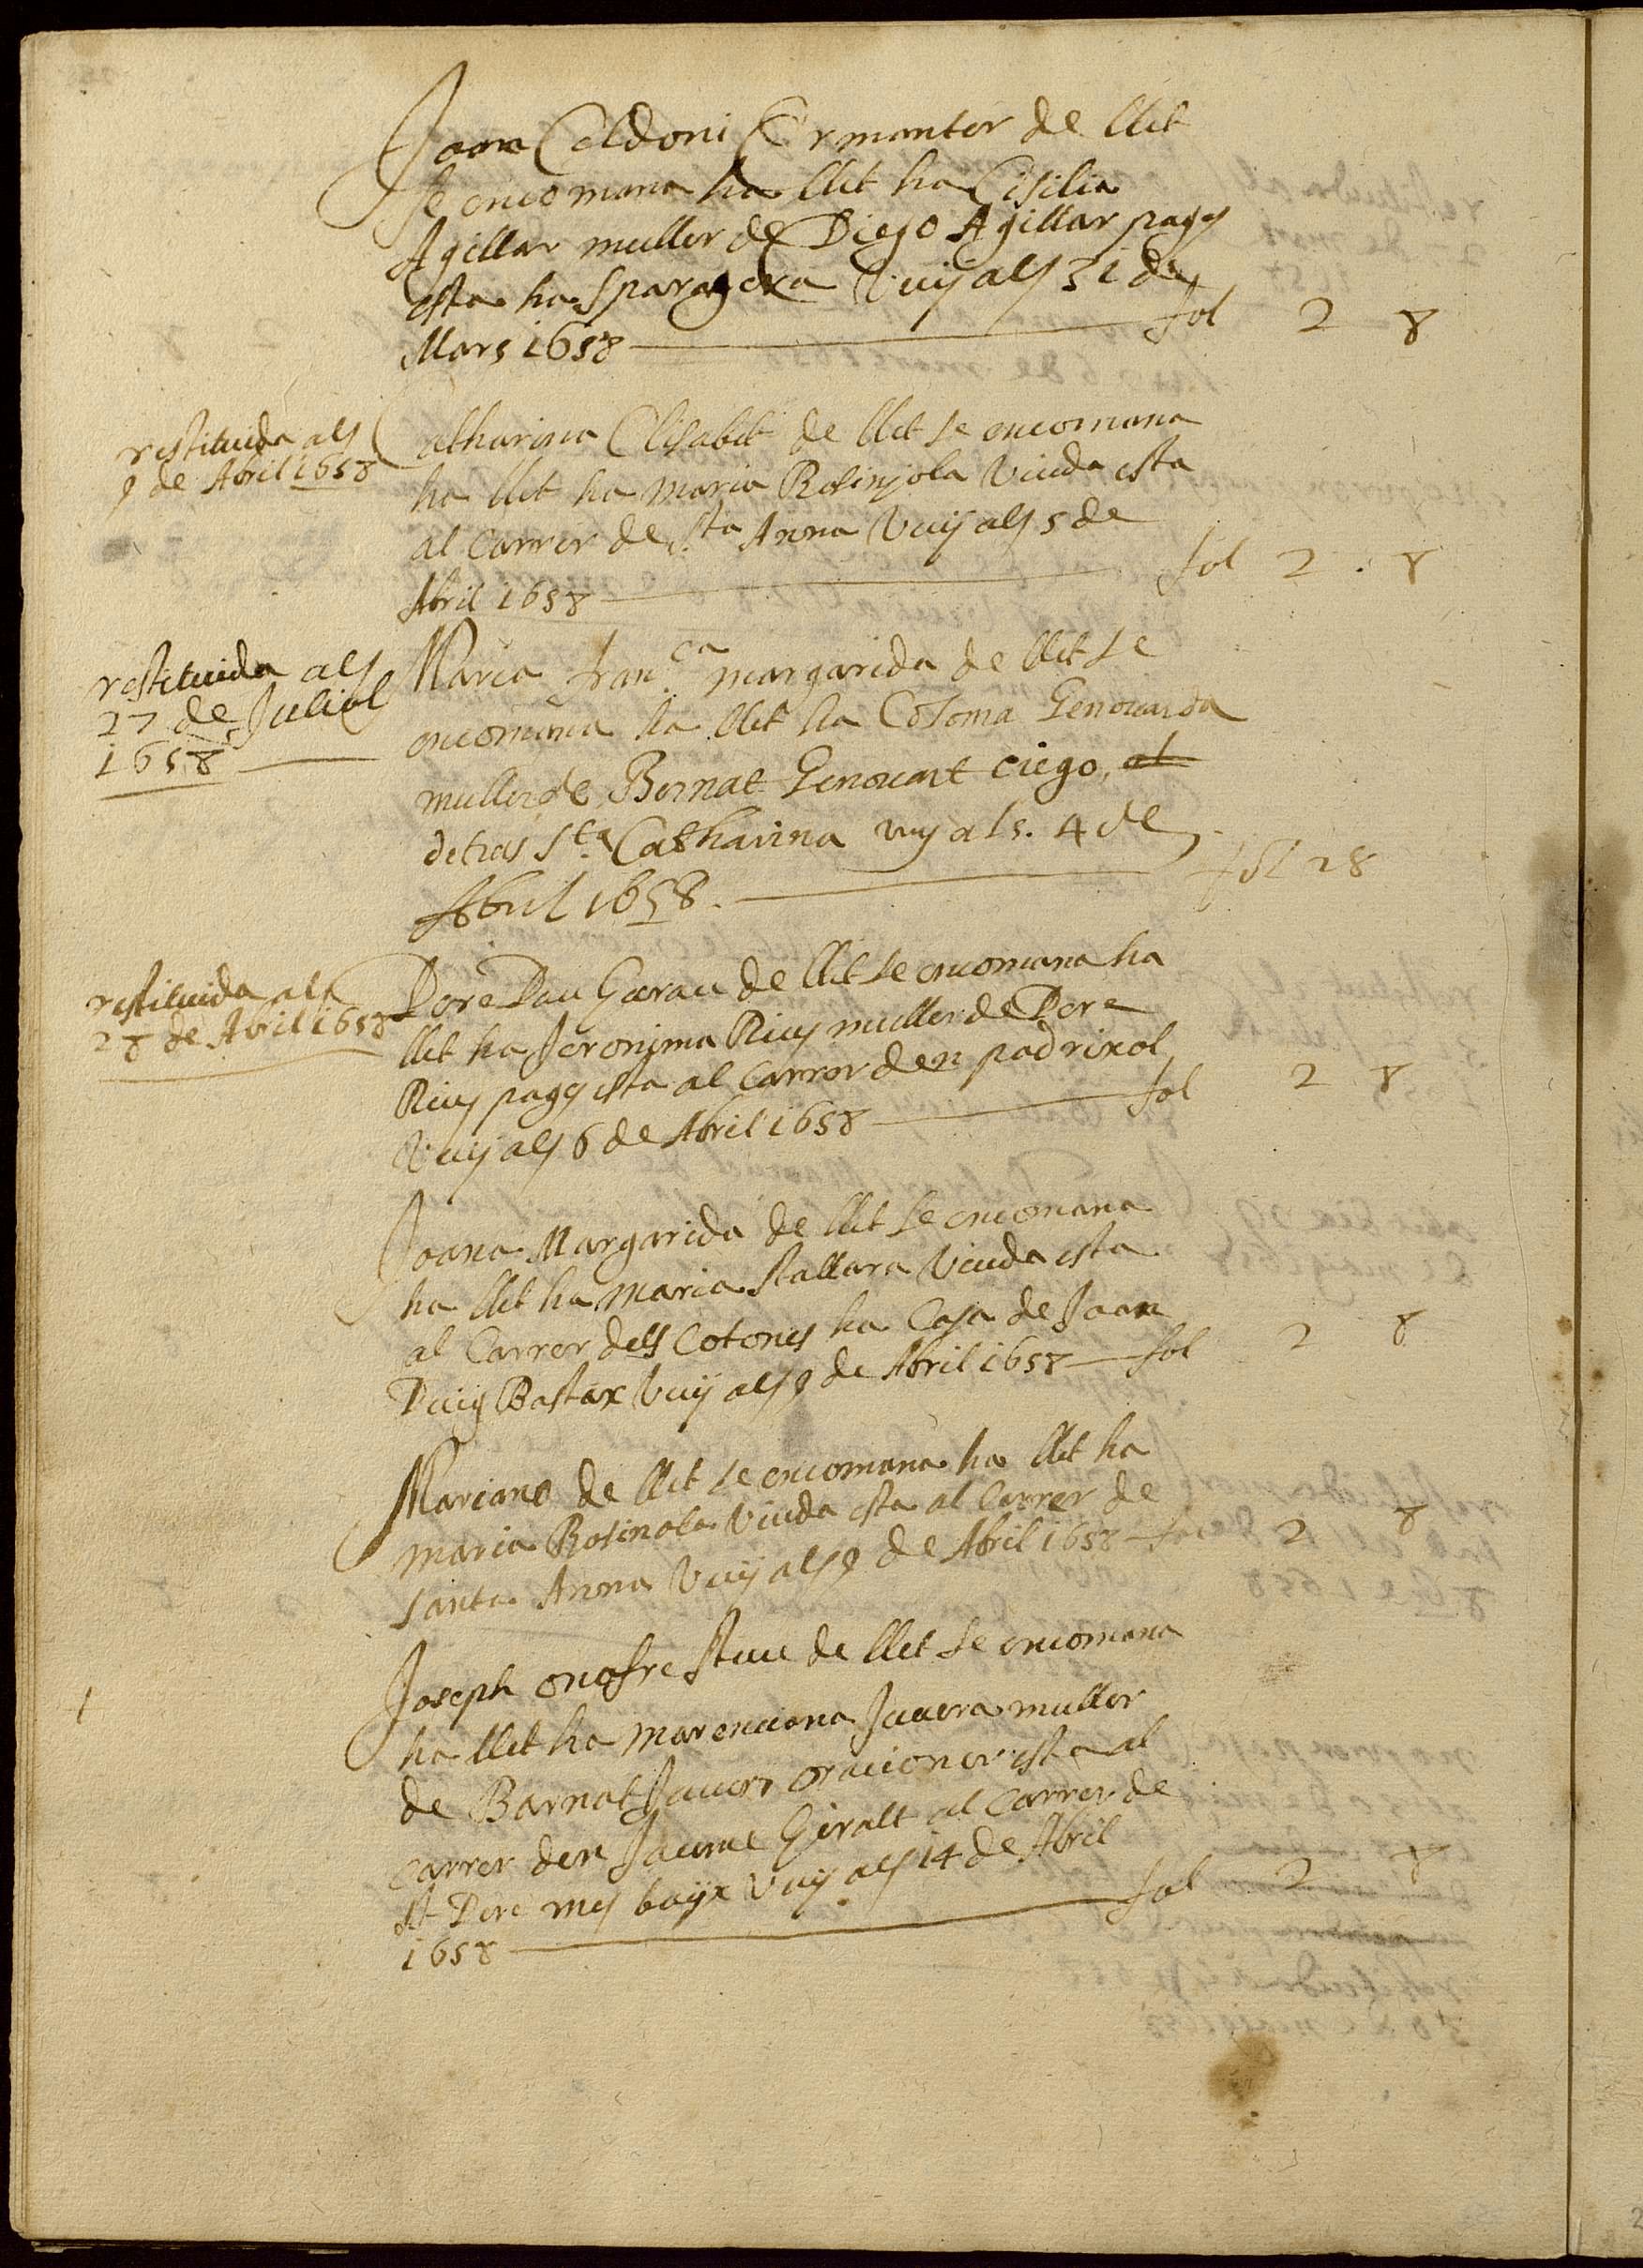 Joan Celdoni Ermanter de llet
se encomana ha llet ha Cisilia
Agillar muller de Diego Agillar pages
esta ha Sparagera Vuij als 31 de
Mars 1658 fol 2 8
restituida als
9 de Abril 1658
Catharina Elisabet de llet se encomana
ha llet ha Maria Rosinjola Viuda esta
al Carrer de Sta Anna Vuij als 5 de
Abril 1658 fol 2 . 8
restituida als
27 de Juliol
1658
Maria Fran.ca margarida de llet se
encomana ha llet ha Coloma Genovarda
muller de Bernat Genovart ciego, al
detras Sta Catharina vuy als. 4 de
Abril 1658. fol 28
restituida als
28 de Abril 1658
Pere Pau Garau de llet se encomana ha
llet ha Jeronima Rius muller de Pere
Rius pages esta al Carrer den padrixol
Vuij als 6 de Abril 1658 fol 2 8
Joana Margarida de llet se encomana
ha llet ha Maria Stallara Viuda esta
al Carrer dels Cotoners ha Casa de Joan
Puig Bastax Vuij als 9 de Abril 1658 fol 2 8
Mariano de llet se encomana ha llet ha
maria Rosinola Viuda esta al Carrer de
santa Anna Vuij als 9 de Abril 1658 fol 2 8
1
Joseph onofre Steve de llet se encomana
ha llet ha Marenciana Juvera muller
de Barnat Juver oracioner esta al
carrer den Jaume Giralt al Carrer de
St Pere mes baijx Vuij als 14 de Abril
1658 fol 2 8